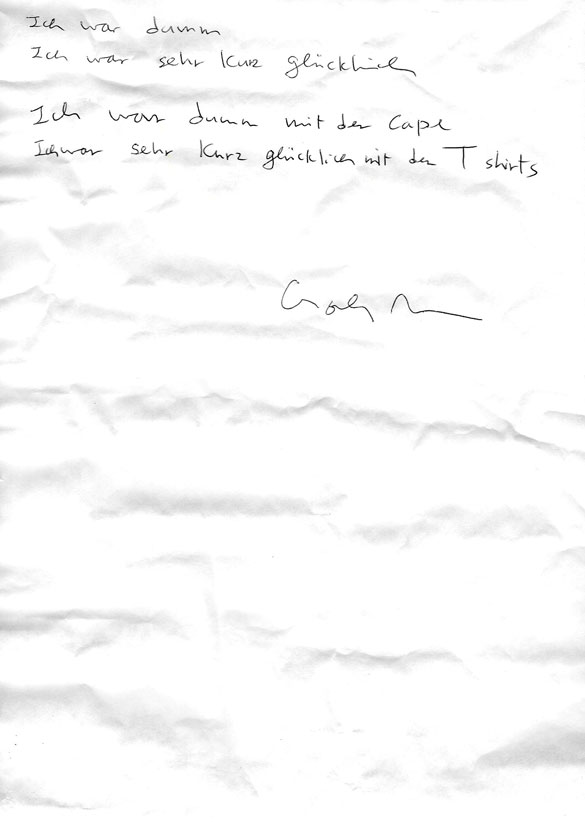 Ich war dumm
Ich war sehr kurz glücklich
Ich war dumm mit der Cape
Ich war sehr kurz glücklich mit den T shirts